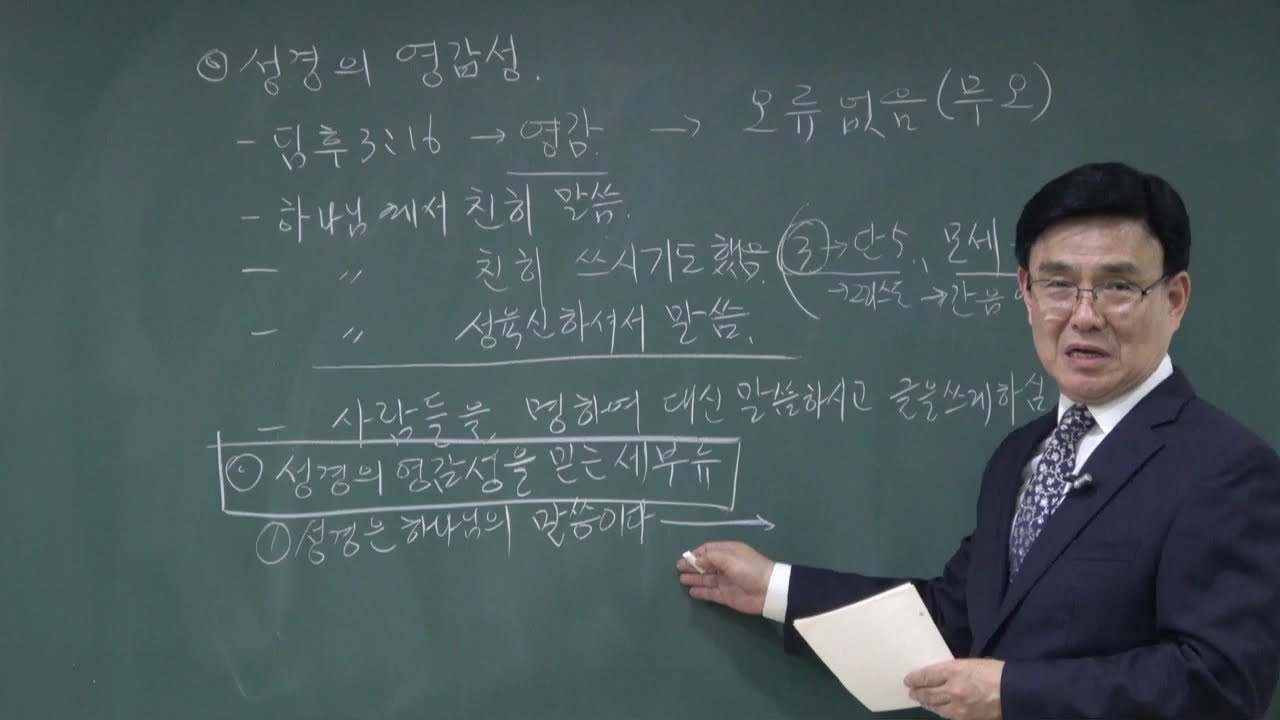 ⊙ 성경의 영감성.
- 딤후3:16 → 영감. → 오류 없음(무오)
- 하나님께서 친히 말씀.
- 〃 친히 쓰시기도 했음. (③→단5, 모세
- 〃 성육신하셔서 말씀. →간음
- 사람들을 명하여 대신 말씀하시고 글을쓰게하심
⊙ 성경의 영감성을 믿는 세부류
① 성경은 하나님의 말씀이다 →